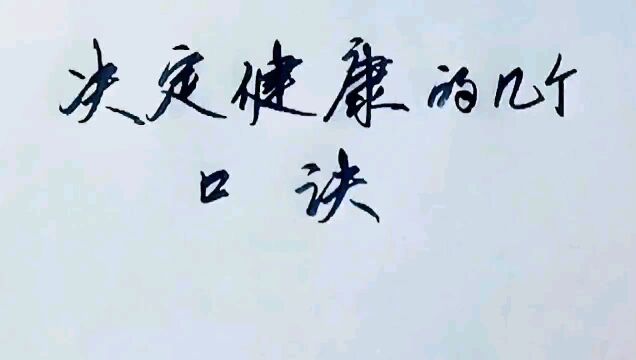 决定健康的几个
口诀